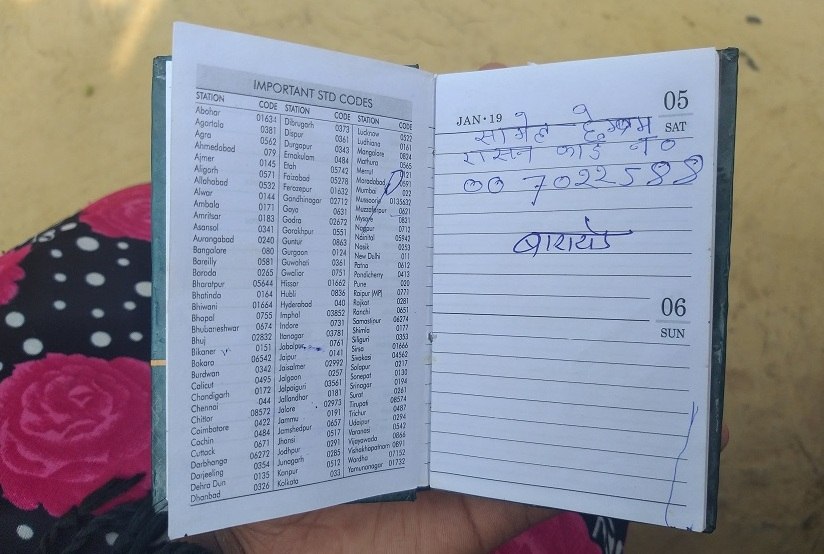 IMPORTANT STD CODES
STATION CODE STATION CODE STATION CODE
Abohar 01634 Dibrugarh 0373 Lucknow 0522
Agartala 0381 Dispur 0361 Ludhiana 0161
Agra 0562 Durgapur 0343 Mangalore 0824
Ahmedabad 079 Ernakulam 0484 Mathura 0565
Ajmer 0145 Etah 05742 Merrut 0121
Aligarh 0571 Faizabad 05278 Moradabad 0591
Allahabad 0532 Ferozepur 01632 Mumbai 022
Alwar 0144 Gandhinagar 02712 Mussoorie 0135632
Ambala 0171 Gaya 0631 Muzzafarpur 0621
Amritsar 0183 Godra 02672 Mysore 0821
Asansol 0341 Gorakhpur 0551 Nagpur 0712
Aurangabad 0240 Guntur 0863 Nainital 05942
Bangalore 080 Gurgaon 0124 Nasik 0253
Bareilly 0581 Guwahati 0361 New Delhi 011
Baroda 0265 Gwalior 0751 Patna 0612
Bharatpur 05644 Hissar 01662 Pondicherry 0413
Bhatinda 0164 Hubli 0836 Pune 020
Bhiwani 01664 Hyderabad 040 Raipur (MP) 0771
Bhopal 0755 Imphal 03852 Rajkot 0281
Bhubaneshwar 0674 Indore 0731 Ranchi 0651
Bhuj 02832 Itanagar 03781 Samastipur 06274
Bikaner 0151 Jabalpur 0761 Shimla 0177
Bokara 06542 Jaipur 0141 Siliguri 0353
Burdwan 0342 Jaisalmer 02992 Sirsa 01666
Calicut 0495 Jalgaon 0257 Sivakasi 04562
Chandigarh 0172 Jalpaiguri 03561 Solapur 0217
Chennai 044 Jallandhar 0181 Sonepat 0130
Chittor 08572 Jalore 02973 Srinagar 0194
Coimbatore 0422 Jammu 0191 Surat 0261
Cochin 0484 Jamshedpur 0657 Tirupati 08574
Cuttack 0671 Jhansi 0517 Trichur 0487
Darbhanga 06272 Jodhpur 0291 Udaipur 0294
Darjeeling 0354 Junagarh 0285 Varanasi 0542
Dehra Dun 0135 Kanpur 0512 Vijayawada 0866
Dhanbad 0326 Kolkata 033 Vishakhapatnam 0891
Wardha 07152
Yamunanagar 01732
JAN•19 05
SAT
रासन कार्ड नं०
007022588
06
SUN